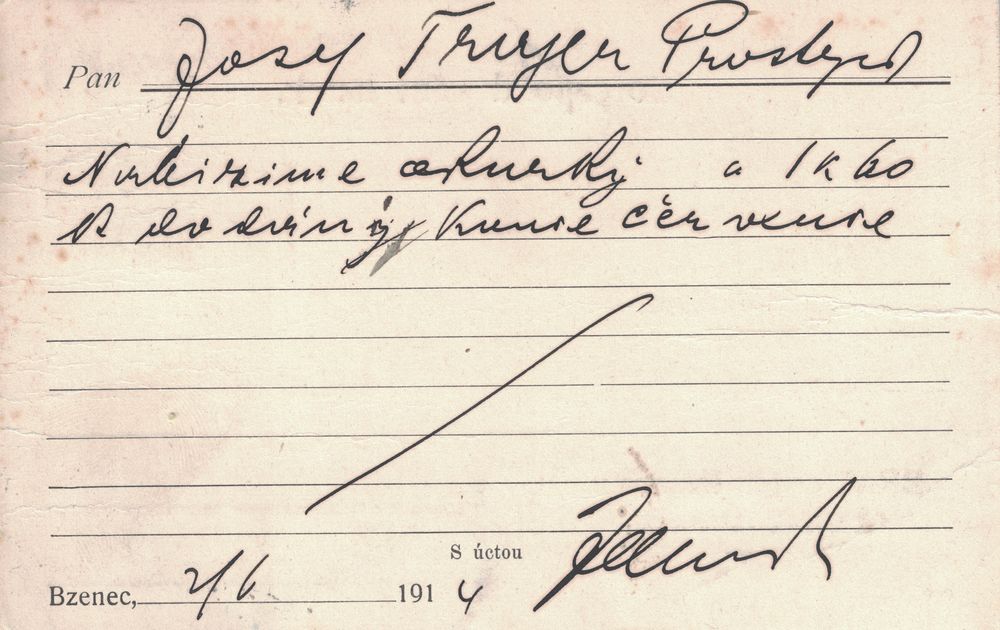 Pan Josef Prostějov
Nabízíme okurky a 1 K 60
k dodání konce července
S úctou
Bzenec, 2/6 1914